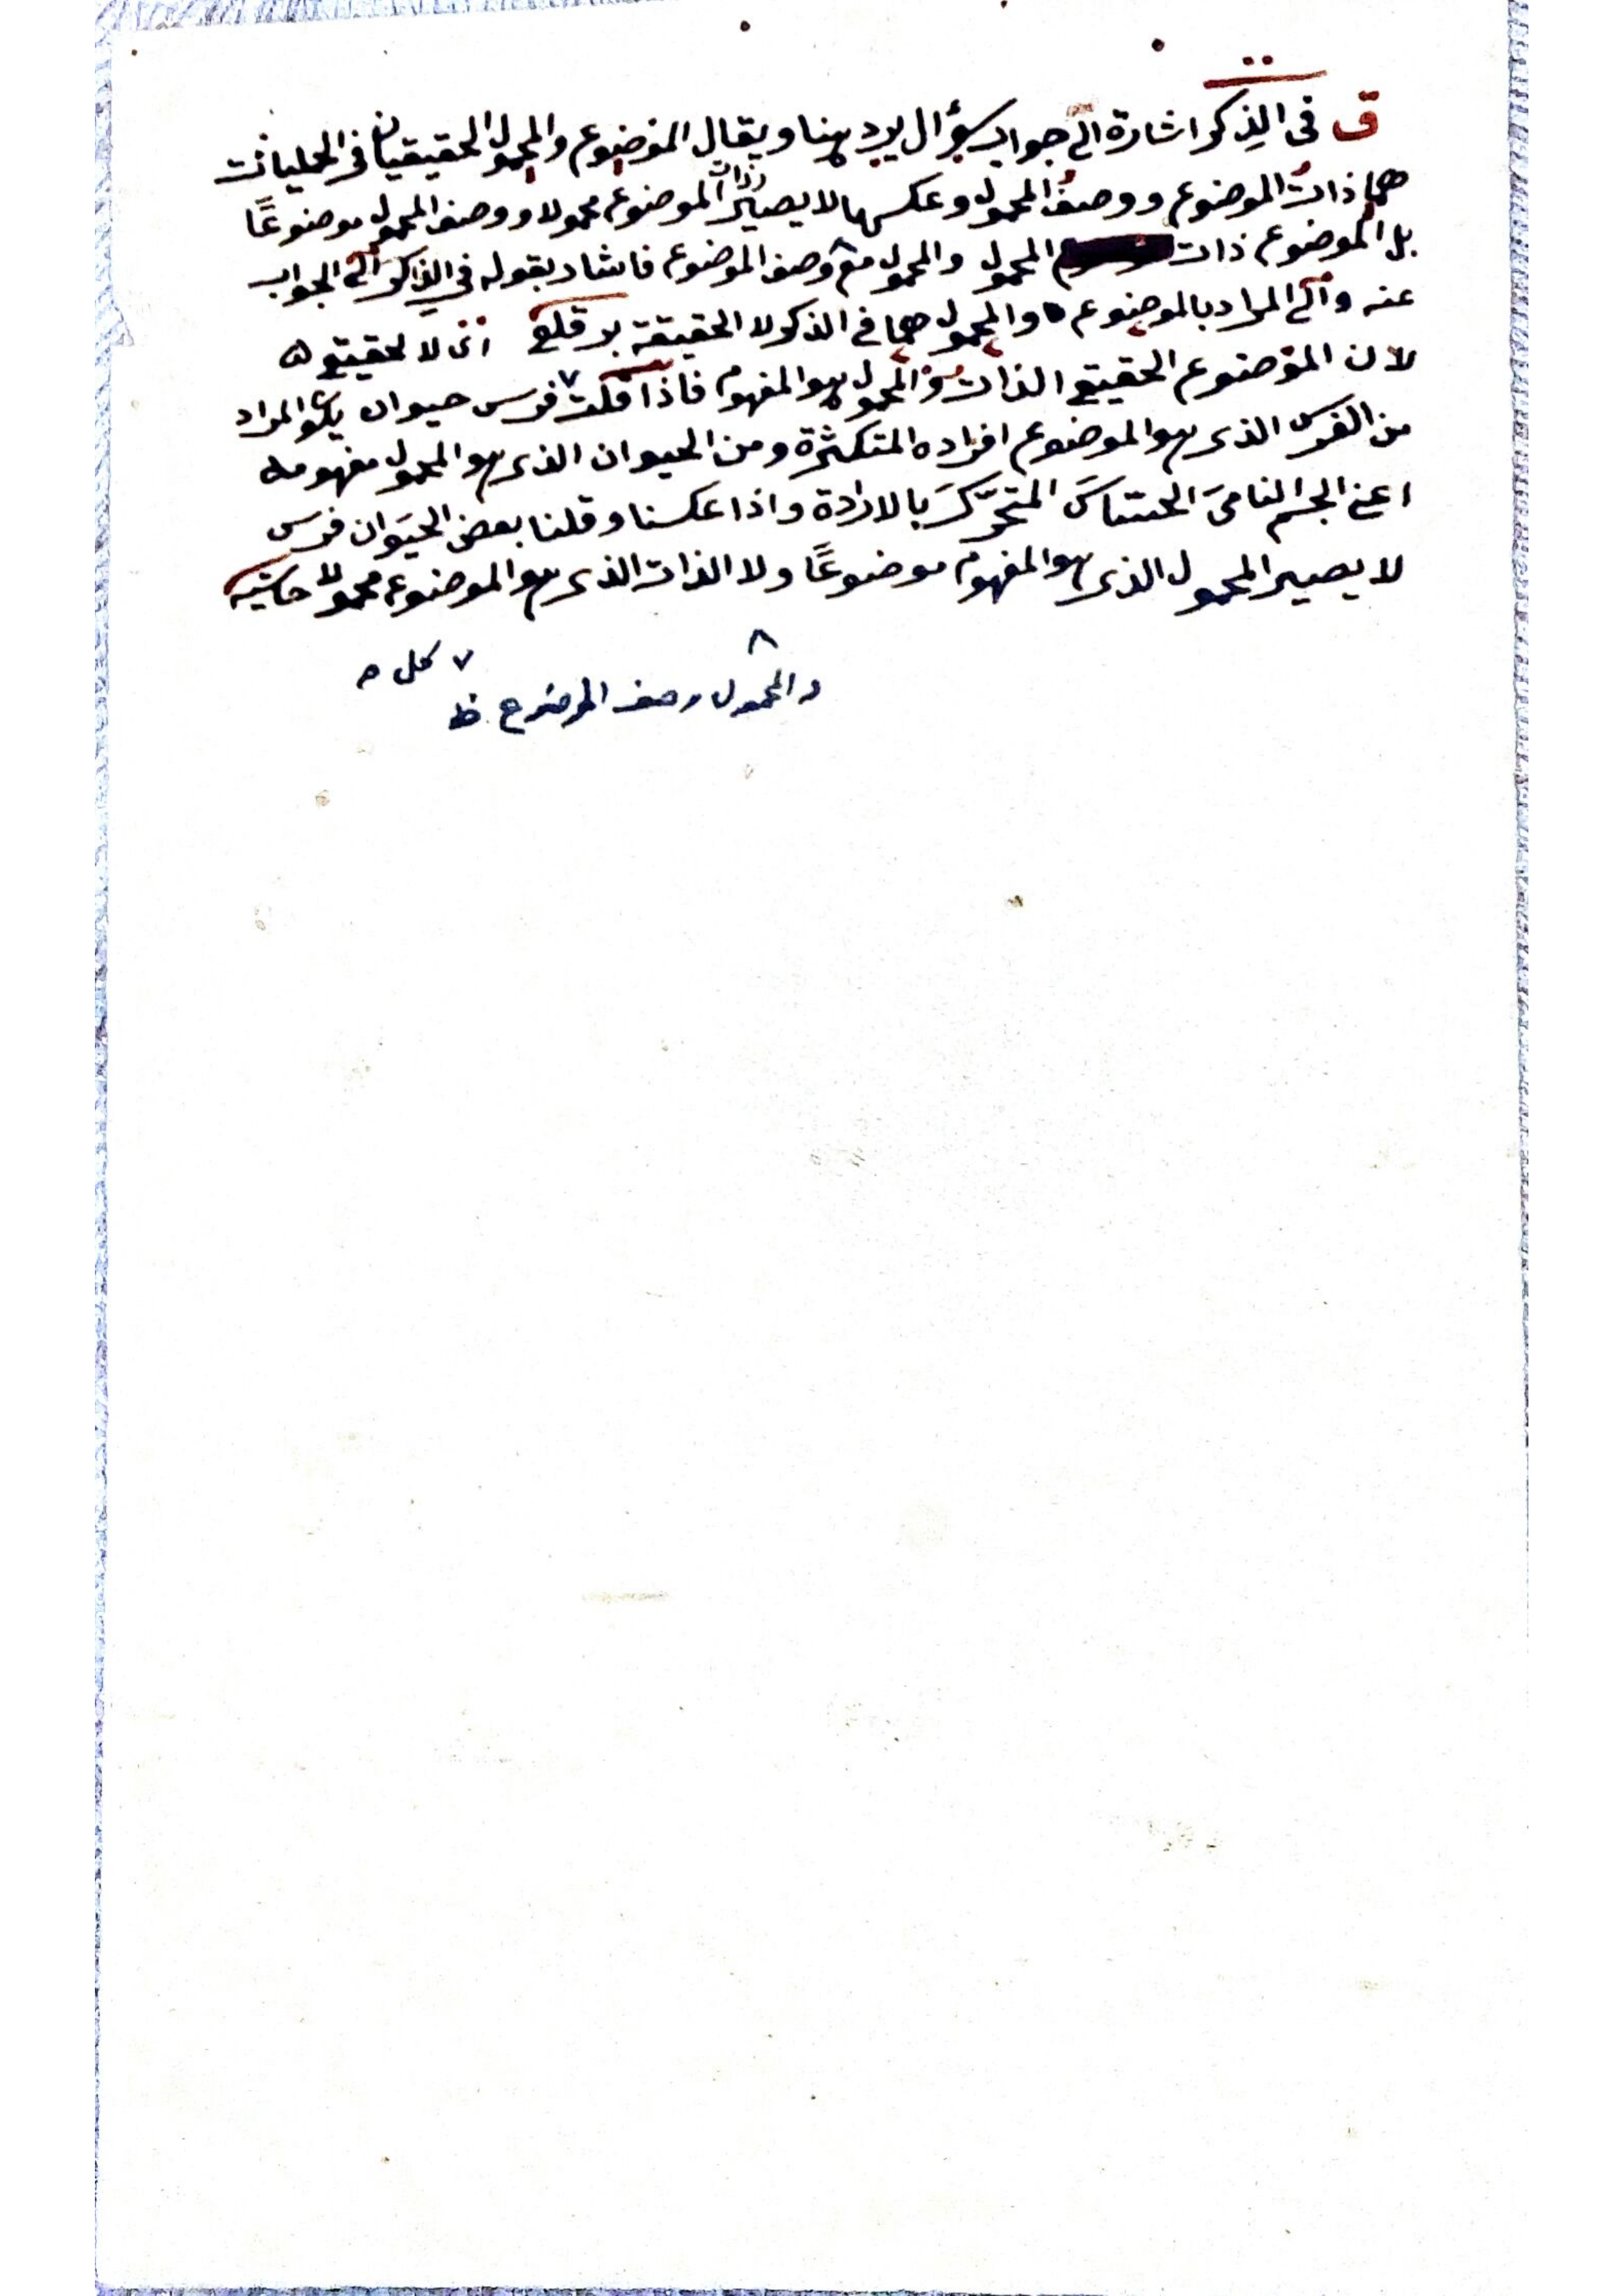 ق فى الذِكر اشارة الى جواب سؤال يرد ههنا ويقال الموضوع والمحمول الحقيقيان فى الحمليات
هما ذاتُ الموضوع ووصفُ المحمول وعكسها لا يصير ذات الموضوع محمولا ووصف المحمول موضوعًا
بل الموضوع ذات المحمول والمحمول مع ٨ وصف الموضوع فاشار بقوله فى الذِكر الى الجواب
عنه والى المراد بالموضوع والمحمول هما فى الذكر لا الحقيقة اى لا لحقيقى ه
لان الموضوع الحقيقى الذات والمحمول هو المفهوم فاذا قلت ٧ فرس حيوان يكو المراد
من الفرس الذى هو الموضوع افراده المتكثرة ومن الحيوان الذى هو المحمول مفهومه
اعنى الجسم النامىَ الحسّاسَ المتحرّكَ بالارادة واذا عكسنا وقلنا بعض الحيَوان فرس
لا يصير المحمول الذى هو المفهوم موضوعًا ولا الذات الذى هو الموضوع محمولا حاشيه
٧ كل م
٨
والمحمول وصف الموضوع ظ